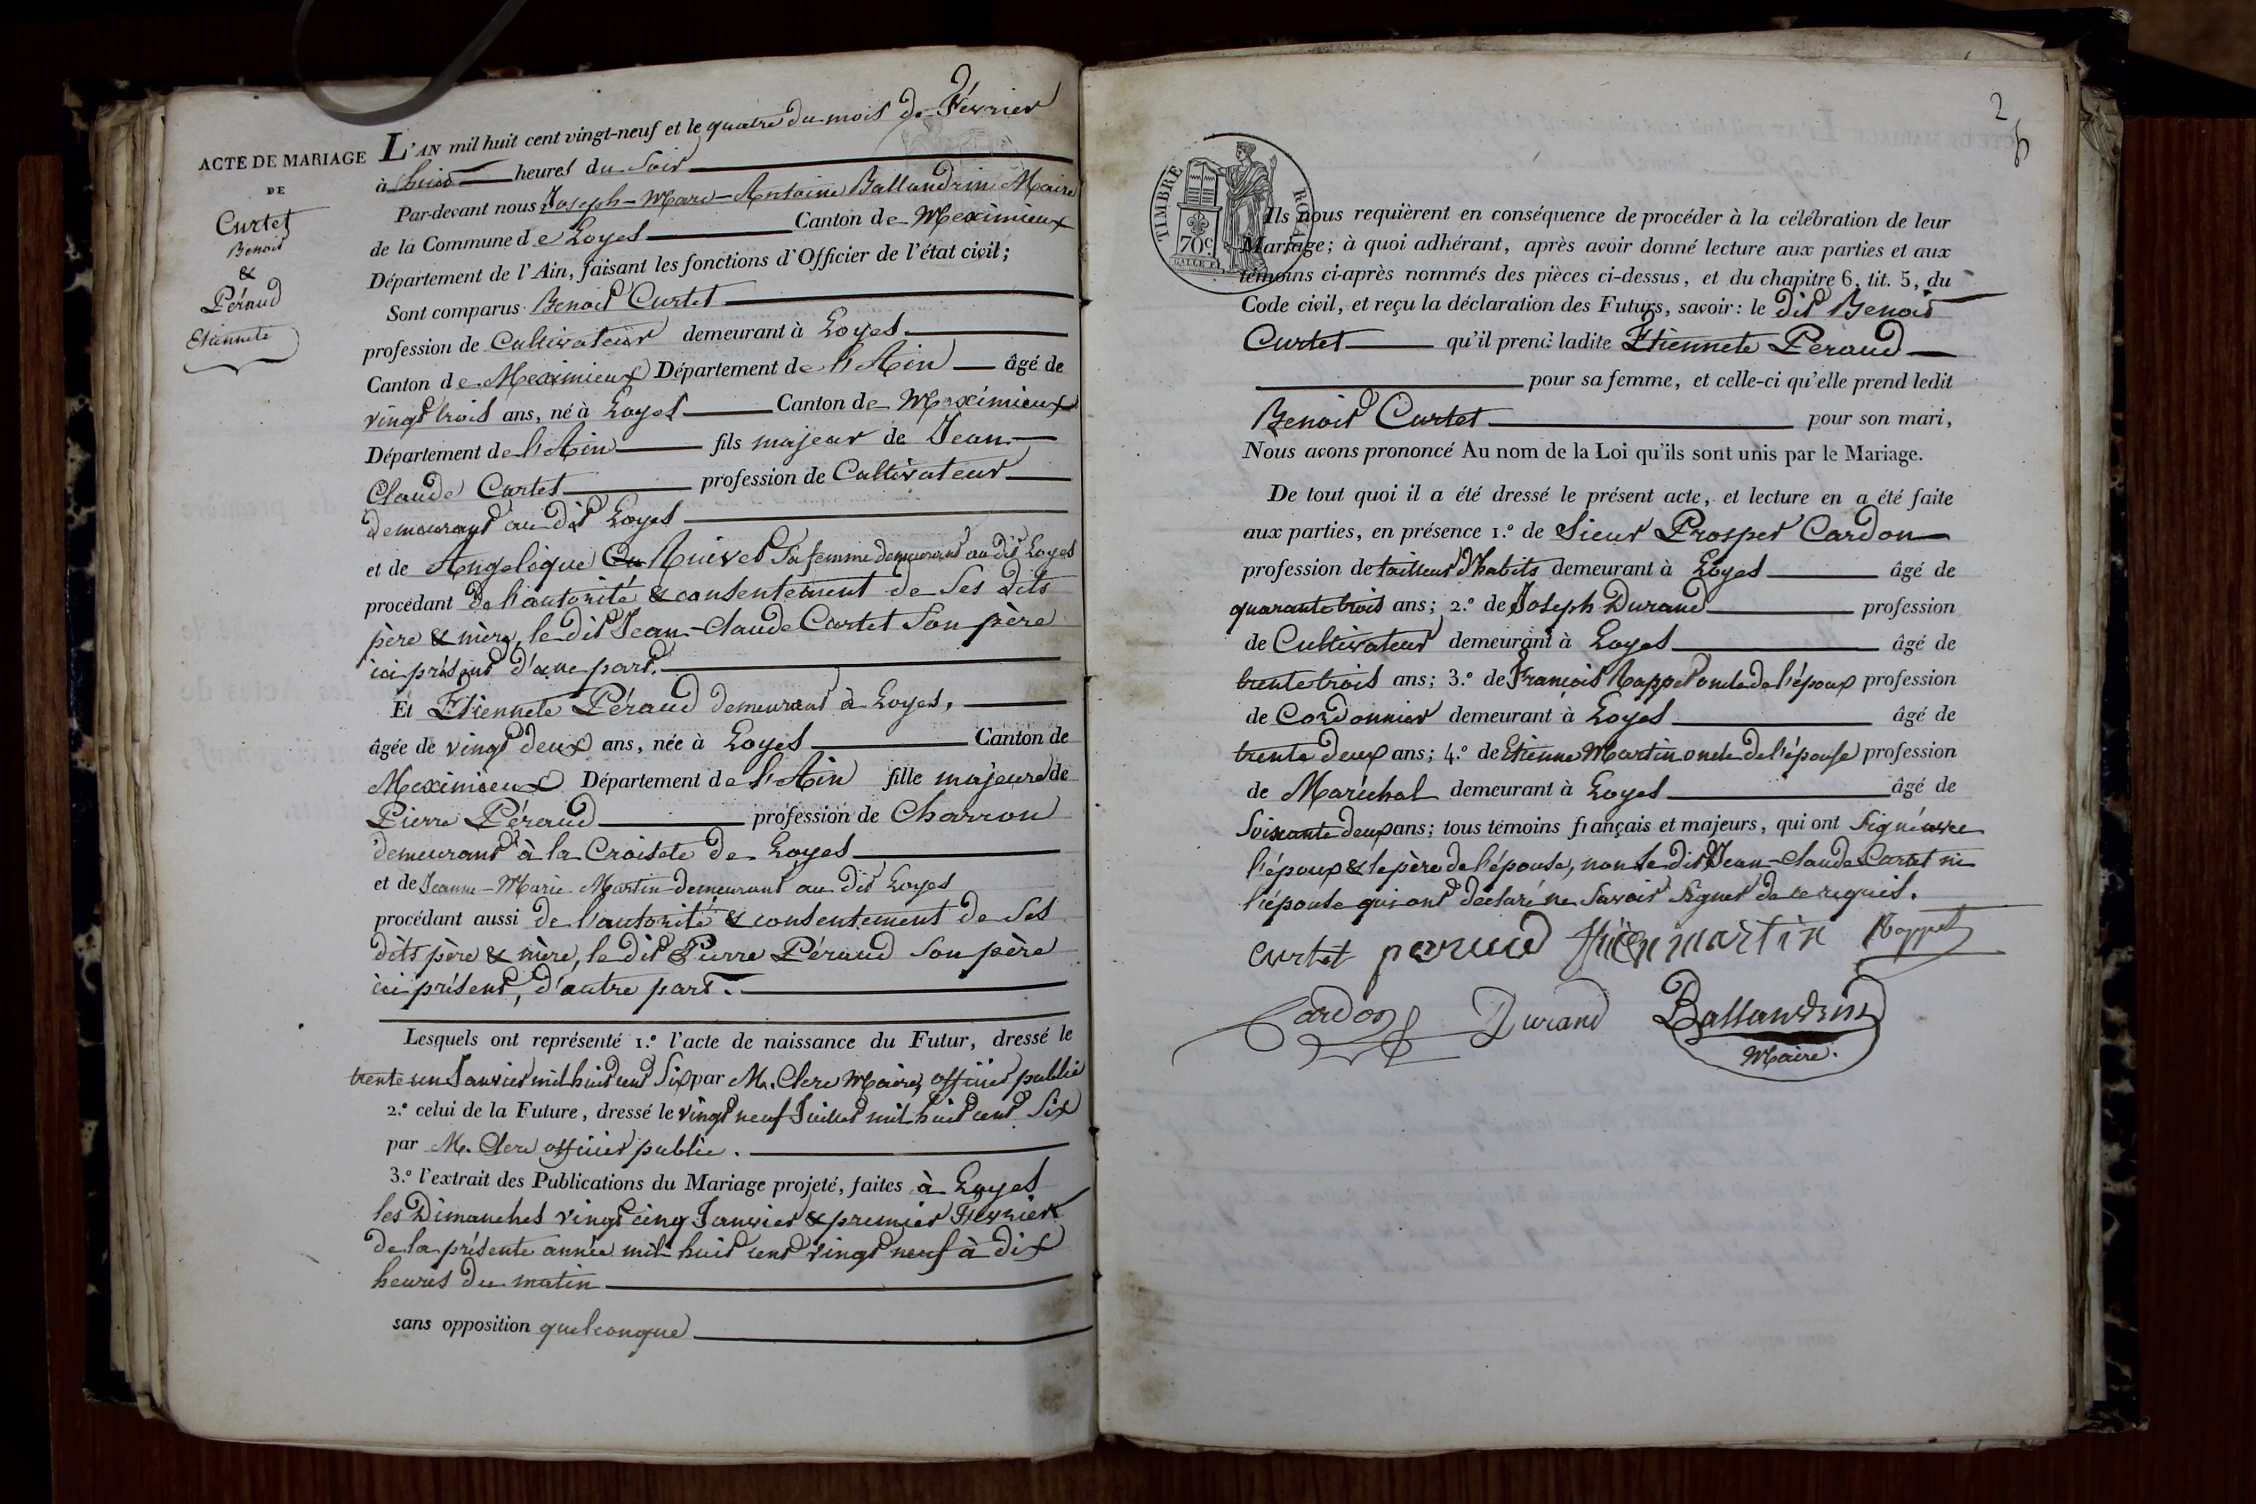 ACTE DE MARIAGE
DE
Curtet
Benoit
&
Péraud
Etiennete
L'AN mil huit cent vingt-neuf et le quatre du mois de Février
à huit heures du Soir
Par-devant nous Joseph-Marc-Antoine Ballandrin Maire
de la Commune de Loyes Canton de Meximieux
Département de l'Ain, faisant les fonctions d'Officier de l'état civil;
Sont comparus Benoit Curtet
profession de Cultivateur demeurant à Loyes
Canton de Meximieux Département de l'Ain âgé de
vingt trois ans, né à Loyes Canton de Meximieux
Département de l'Ain fils majeur de Jean
Claude Curtet profession de Cultivateur
demeurant au dit Loyes
et de Angelique Sa femme demeurant au dit Loyes
procédant de l'autorité & consentement de Ses dits
père & mère, le dit Jean-Claude Curtet Son père
ici présent d'une part.
Et Etiennete Péraud demeurant à Loyes,
âgée de vingt deux ans, née à Loyes Canton de
Meximieux Département de l'Ain fille majeure de
Pierre Péraud profession de Charron
demeurant à la Croisete de Loyes
et de Jeanne-Marie Martin demeurant au dit Loyes
procédant aussi de l'autorité & consentement de Ses
dits père & mère, le dit Pierre Péraud Son père
ici présent, d'autre part.
Lesquels ont représenté 1.º l'acte de naissance du Futur, dressé le
trente un Janvier mil huit cent Six par M. Clerc Maire, officier public
2.º celui de la Future, dressé le vingt neuf Juillet mil huit cent Six
par M. Clerc officier public.
3.º l'extrait des Publications du Mariage projeté, faites à Loyes
les Dimanches vingt cinq Janvier & premier Février
de la présente année mil huit cent vingt neuf à dix
heures du matin
sans opposition quelconque
2
TIMBRE ROYAL
70c
Ils nous requièrent en conséquence de procéder à la célébration de leur
Mariage; à quoi adhérant, après avoir donné lecture aux parties et aux
témoins ci-après nommés des pièces ci-dessus, et du chapitre 6, tit. 5, du
Code civil, et reçu la déclaration des Futurs, savoir: le dit Benoit
Curtet qu'il prend ladite Etiennete Péraud
pour sa femme, et celle-ci qu'elle prend ledit
Benoit Curtet pour son mari,
Nous avons prononcé Au nom de la Loi qu'ils sont unis par le Mariage.
De tout quoi il a été dressé le présent acte, et lecture en a été faite
aux parties, en présence 1.º de Sieur Prosper Cardon
profession de tailleur d'habits demeurant à Loyes âgé de
quarante trois ans; 2.º de Joseph Durand profession
de Cultivateur demeurant à Loyes âgé de
trente trois ans; 3.º de François Rappet oncle de l'époux profession
de Cordonnier demeurant à Loyes âgé de
trente deux ans; 4.º de Etienne Martin oncle de l'épouse profession
de Maréchal demeurant à Loyes âgé de
Soixante deux ans; tous témoins français et majeurs, qui ont Signé avec
l'époux & le père de l'épouse, non le dit Jean-Claude Curtet ni
l'épouse qui ont déclaré ne Savoir Signer de ce requis.
curtet peraud martin Rappet
Cardon Durand Ballandrin
Maire.